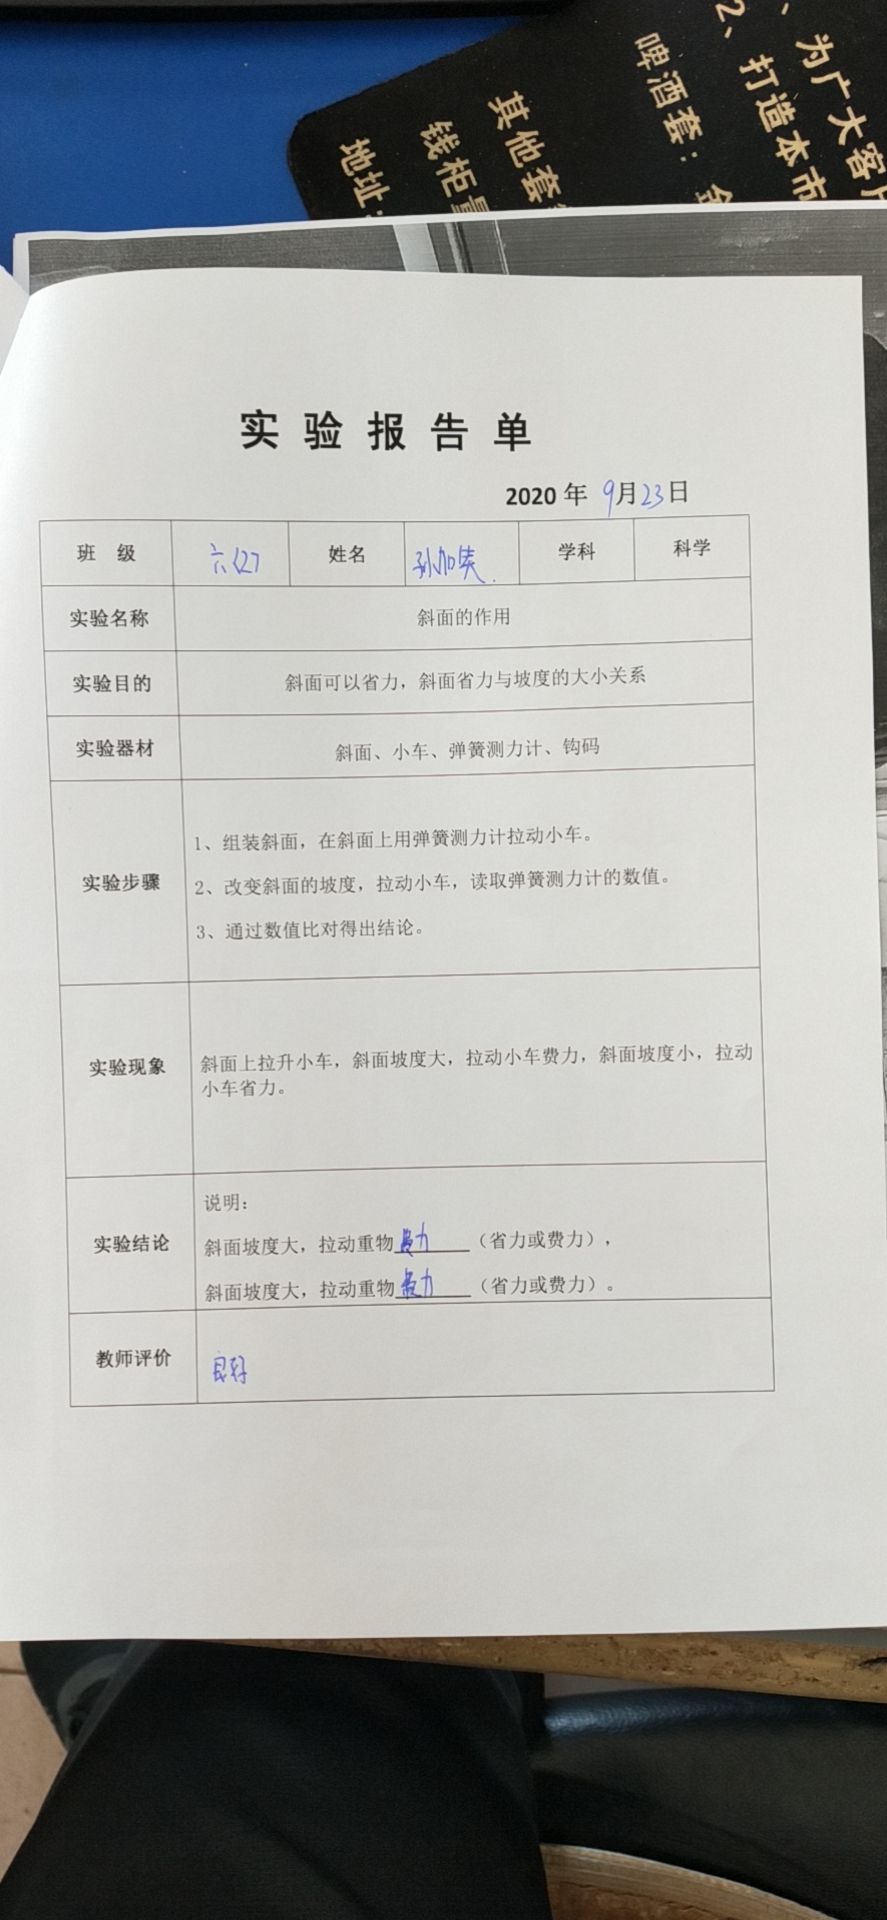 为广大客户
2、打造本市
啤酒套：金
其他套
钱柜量
地址:
实验报告单
2020年 9月23日
班 级 六(2) 姓名 学科 科学
实验名称 斜面的作用
实验目的 斜面可以省力，斜面省力与坡度的大小关系
实验器材 斜面、小车、弹簧测力计、钩码
实验步骤
1、组装斜面，在斜面上用弹簧测力计拉动小车。
2、改变斜面的坡度，拉动小车，读取弹簧测力计的数值。
3、通过数值比对得出结论。
实验现象
斜面上拉升小车，斜面坡度大，拉动小车费力，斜面坡度小，拉动
小车省力。
实验结论
说明：
斜面坡度大，拉动重物费力（省力或费力），
斜面坡度大，拉动重物费力（省力或费力）。
教师评价 良好